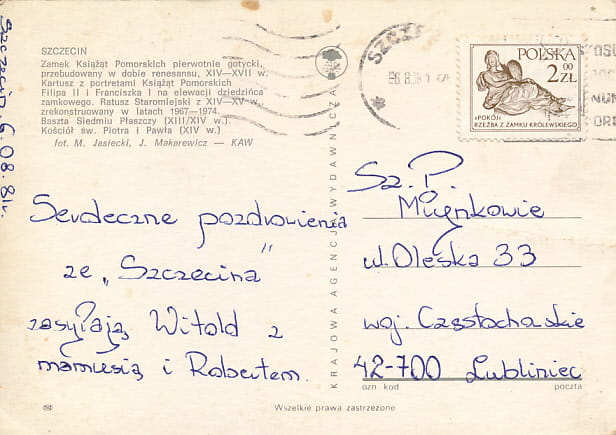 Szczecin, 6.08.81r.
SZCZECIN
Zamek Książąt Pomorskich pierwotnie gotycki,
przebudowany w dobie renesansu, XIV—XVII w.
Kartusz z portretami Książąt Pomorskich
Filipa II i Franciszka I na elewacji dziedzińca
zamkowego. Ratusz Staromiejski z XIV—XV w.,
zrekonstruowany w latach 1967—1974.
Baszta Siedmiu Płaszczy (XIII/XIV w.)
Kościół św. Piotra i Pawła (XIV w.)
fot. M. Jasiecki, J. Makarewicz — KAW
Serdeczne pozdrowienia
ze „Szczecina"
zasyłają Witold z
mamusią i Robertem.
KRAJOWA AGENCJA WYDAWNICZA
POLSKA
2 00 ZŁ
«POKÓJ»
RZEŹBA Z ZAMKU KRÓLEWSKIEGO
Sz. P.
ul. Oleska 33
woj. Częstochowskie
42-700 Lubliniec
ozn kod
poczta
Wszelkie prawa zastrzeżone